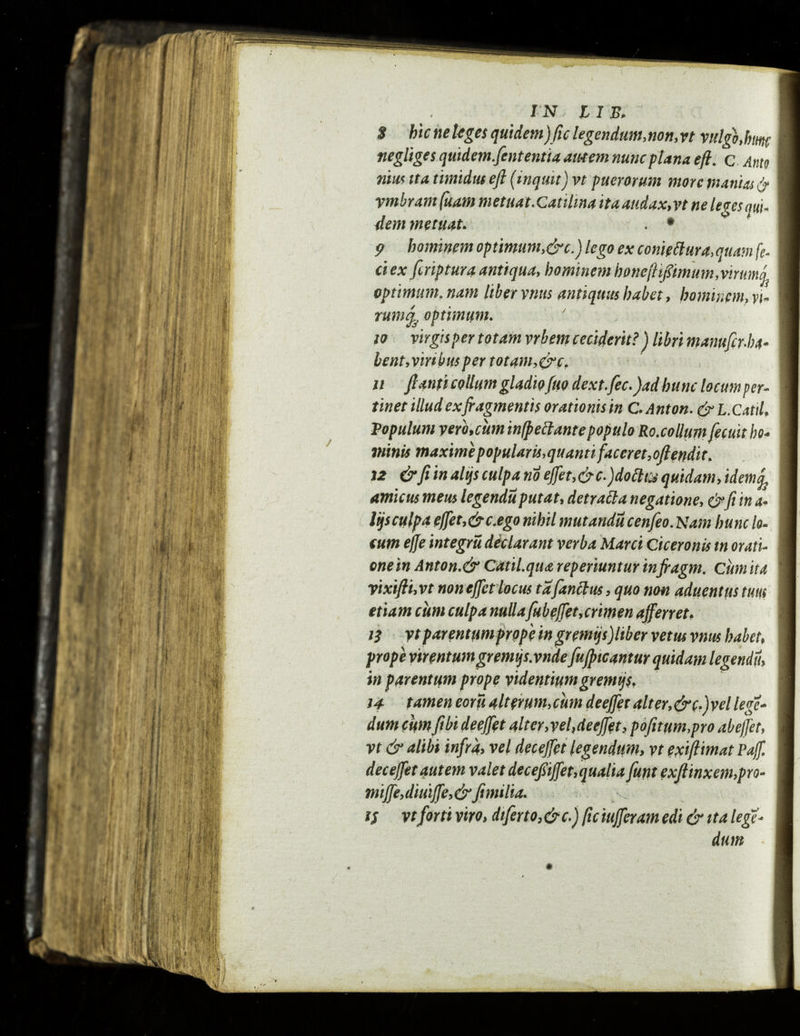 IN LIB.
8 hic ne leges quidem) ſic legendum, non, vt vulgò, hunc
negliges quidem. ſententia autem nunc plana eſt. C Anto
nius ita timidus eſt (inquit) vt puerorum more manias &
vmbram ſuam metuat. Catilina ita audax, vt ne leges qui-
dem metuat.
9 hominem optimum, &c.) lego ex coniectura, quam fe-
ci ex ſcriptura antiqua, hominem honeſtiſsimum, virumq̃
optimum. nam liber vnus antiquus habet, hominem, vi-
rumq̃ optimum.
10 virgis per totam vrbem ceciderit?) libri manuſcr. ha-
bent, viribus per totam, &c.
11 ſtanti collum gladio ſuo dext. ſec.) ad hunc locum per-
tinet illud ex fragmentis orationis in C. Anton. & L. Catil.
Populum verò, cùm inſpectante populo Ro. collum ſecuit ho-
minis maximè popularis, quanti faceret, oſtendit.
12 & ſi in alijs culpa nō eſſet, &c.) doctus quidam, idemq̃
amicus meus legendũ putat, detracta negatione, & ſi in a-
lijs culpa eſſet, &c. ego nihil mutandũ cenſeo. Nam hunc lo-
cum eſſe integrũ declarant verba Marci Ciceronis in orati-
one in Anton. & Catil. quæ reperiuntur in fragm. Cùm ita
vixiſti, vt non eſſet locus tã ſanctus, quo non aduentus tuus
etiam cùm culpa nulla ſubeſſet, crimen afferret.
13 vt parentum propè in gremijs) liber vetus vnus habet,
propè virentum gremijs. vnde ſuſpicantur quidam legendũ,
in parentum prope videntium gremijs.
14 tamen eorũ alterum, cùm deeſſet alter, &c.) vel legē-
dum cùm ſibi deeſſet alter, vel, deeſſet, poſitum, pro abeſſet,
vt & alibi infrà, vel deceſſet legendum, vt exiſtimat Paſſ.
deceſſet autem valet deceſsiſſet, qualia ſunt exſtinxem, pro-
miſſe, diuiſſe, & ſimilia.
15 vt forti viro, diſerto, &c.) ſic iuſſeram edi & ita legē-
dum